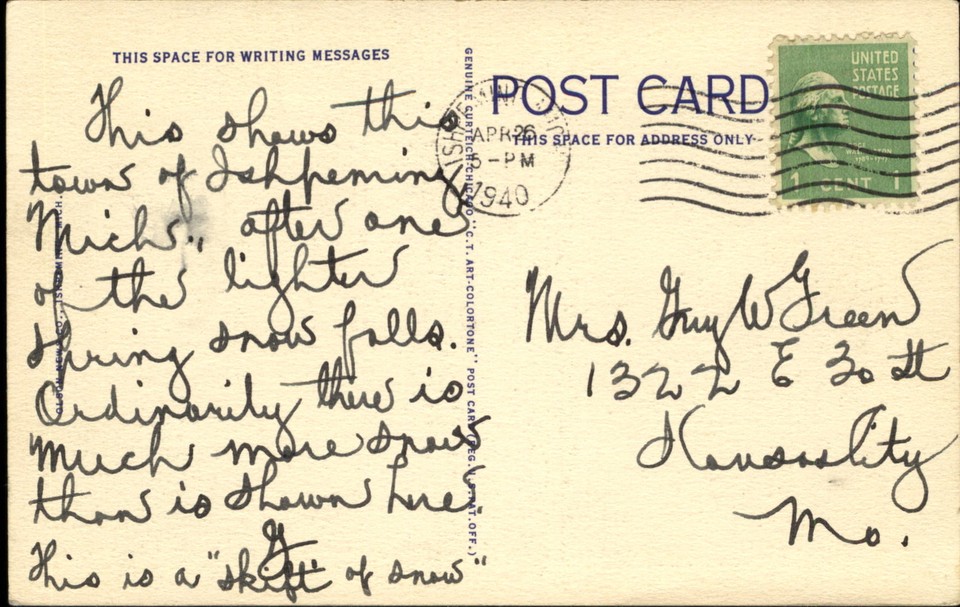 THIS SPACE FOR WRITING MESSAGES
This shows this
town of Ishpeming
Mich., after one
of the lighter
spring snow falls.
Ordinarily there is
much more snow
than is shown here.
G
This is a "skift" of snow"
GENUINE CURTEICH-CHICAGO "C.T. ART-COLORTONE" POST CARD (REG. U.S. PAT. OFF.)
POST CARD
THIS SPACE FOR ADDRESS ONLY
APR 26
5-PM
1940
UNITED
STATES
POSTAGE
1 CENT 1
Mrs. Guy W Green
1322 E 30 St
Kansas City
Mo.